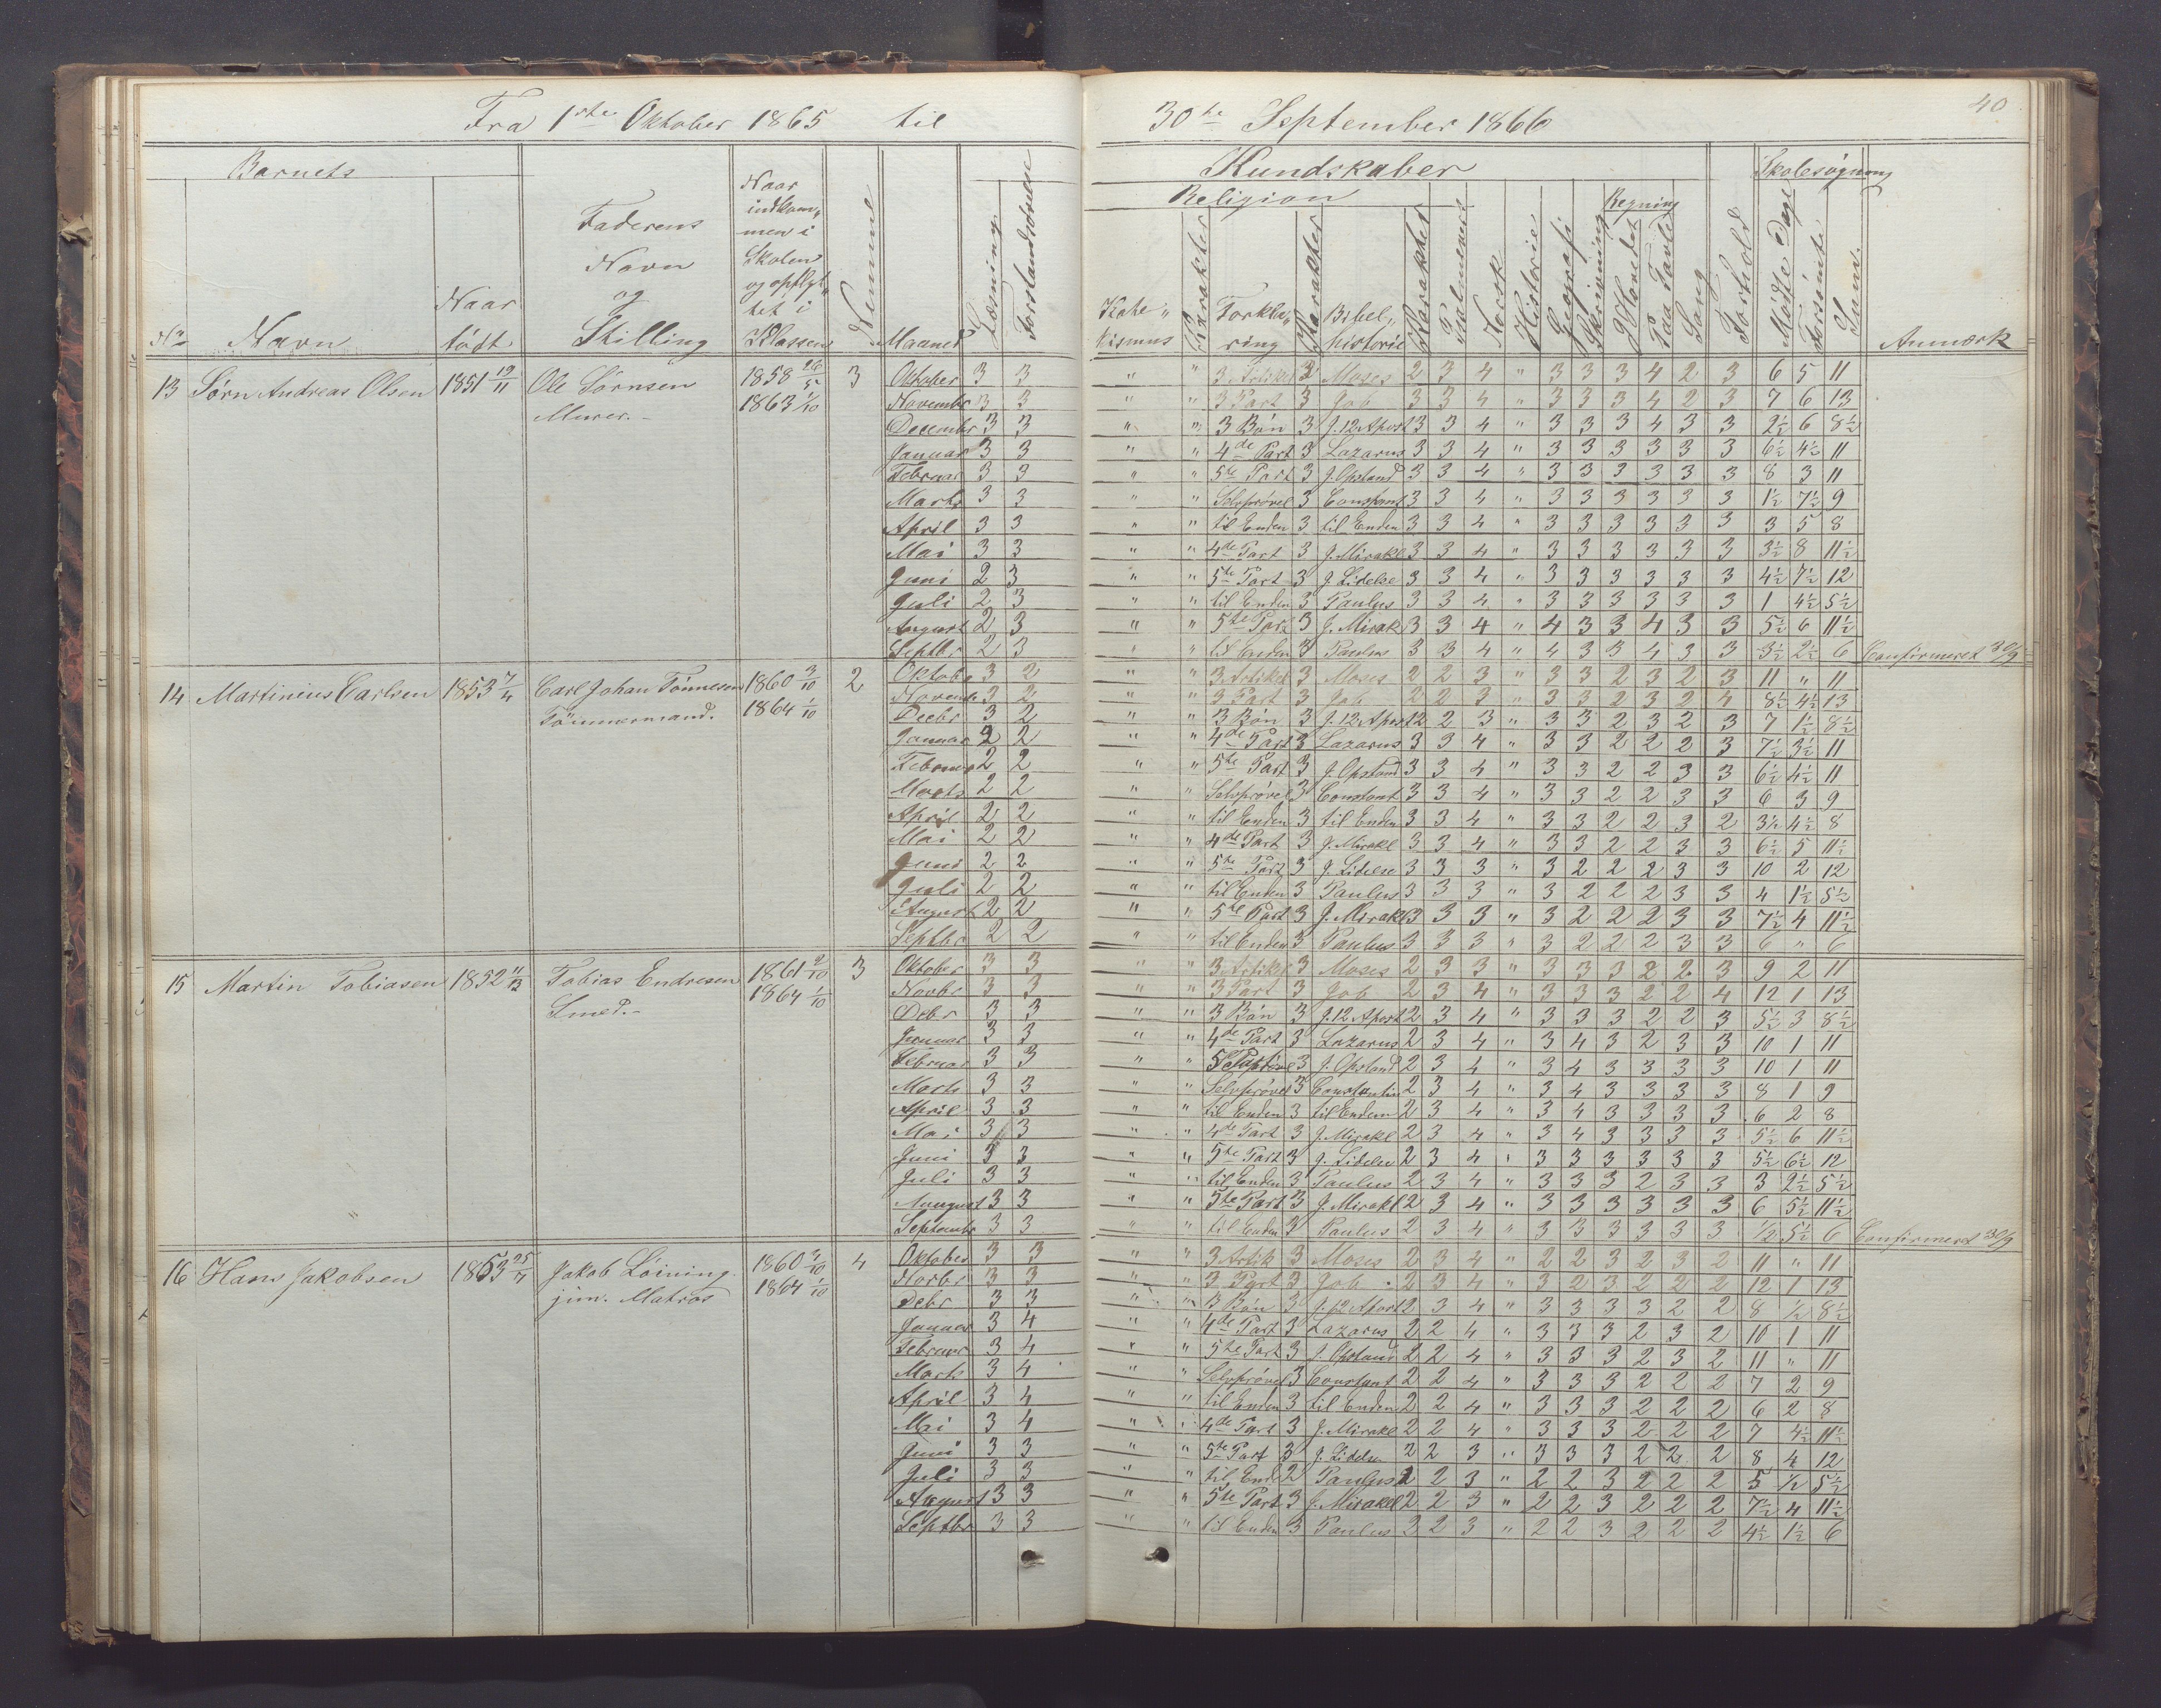 Fra 1ste Oktober 1865 til 30te September 1866
40
Barnets
No Navn Naar född Faderens Navn og Stilling Naar indkommen i Skolen og opflyttet i Klassen Nemme Maaned Læsning Forstandsövelse
Kundskaber
Religion Regning Skolesøgning
Katekismus Karakter Forklaring Karakter Bibelhistorie Karakter Psalmevers Norsk Historie Geografi Skrivning I Hovedet Paa Tavle Sang Forhold Mödte Dage Forsömte Sum Anmærk
13 Sörn Andreas Olsen 1851 19/11 Ole Sörnsen 1858 26/5 3 Oktober 3 3 " " 3 Artikel 3 Moses 2 3 4 " 3 3 3 4 2 3 6 5 11
Murer. 1863 1/10 Novembr 3 3 " " 3 Part 3 Job 3 3 4 " 3 3 3 4 2 3 7 6 13
Decembr 3 3 " " 3 Bön 3 J. 12 Apost 3 3 4 " 3 3 3 4 3 3 2½ 6 8½
Januar 3 3 " " 4de Part 3 Lazarus 3 3 4 " 3 3 3 3 3 3 6½ 4½ 11
Februar 3 3 " " 5te Part 3 J. Opstand 3 3 4 " 3 3 3 3 3 3 8 3 11
Marts 3 3 " " Selvprövel 3 Constant 3 3 4 " 3 3 3 3 3 3 1½ 7½ 9
April 3 3 " " til Enden 3 til Enden 3 3 4 " 3 3 3 3 3 3 3 5 8
Mai 3 3 " " 4de Part 3 J. Mirakl 3 3 4 " 3 3 3 3 3 3 3½ 8 11½
Juni 2 3 " " 5te Part 3 J. Lidelse 3 3 4 " 3 3 3 3 3 3 4½ 7½ 12
Juli 2 3 " " til Enden 3 Paulus 3 3 4 " 3 3 3 3 3 3 1 4½ 5½
August 2 3 " " 5te Part 3 J. Mirak 3 3 4 " 4 3 3 4 3 3 5½ 6 11½
Septbr 2 3 " " til Enden 3 Paulus 3 3 4 " 4 3 3 4 3 3 3½ 2½ 6 Confirmeret 30/9
14 Martinius Carlsen 1853 7/4 Carl Johan Tönnesen 1860 3/10 2 Oktobe 3 2 " " 3 Artikel 3 Moses 2 2 3 " 3 3 2 3 2 3 11 " 11
Tömmermand. 1864 1/10 Novembr 3 2 " " 3 Part 3 Job 2 2 3 " 3 3 2 3 2 4 8½ 4½ 13
Decbr 3 2 " " 3 Bön 3 J. 12 Apost 2 2 3 " 3 3 2 3 2 3 7 1½ 8½
Januar 2 2 " " 4de Part 3 Lazarus 3 3 4 " 3 3 2 2 2 3 7½ 3½ 11
Februar 2 2 " " 5te Part 3 J. Opstand 3 3 4 " 3 3 2 2 3 3 6½ 4½ 11
Marts 2 2 " " Selvprövel 3 Constant 3 3 4 " 3 3 2 2 3 3 6 3 9
April 2 2 " " til Enden 3 til Enden 3 3 4 " 3 3 2 2 3 2 3½ 4½ 8
Mai 2 2 " " 4de Part 3 J. Mirakl 3 3 4 " 3 3 2 2 3 3 6½ 5 11½
Juni 2 2 " " 5te Part 3 J. Lidelse 3 3 3 " 3 2 2 2 3 3 10 2 12
Juli 2 2 " " til Enden 3 Paulus 3 3 3 " 3 2 2 2 3 3 4 1½ 5½
August 2 2 " " 5te Part 3 J. Mirakl 3 3 3 " 3 2 2 2 3 3 7½ 4 11½
Septbr 2 2 " " til Enden 3 Paulus 3 3 3 " 3 2 2 2 3 3 6 " 6
15 Martin Tobiasen 1852 11/12 Tobias Endresen 1861 2/10 3 Oktober 3 3 " " 3 Artikel 3 Moses 2 3 3 " 3 3 3 2 2 3 9 2 11
Smed. 1864 1/10 Novbr 3 3 " " 3 Part 3 Job 2 3 4 " 3 3 3 2 2 4 12 1 13
Debr 3 3 " " 3 Bön 3 J. 12 Apost 2 3 4 " 3 3 3 2 2 3 5½ 3 8½
Januar 3 3 " " 4de Part 3 Lazarus 2 3 4 " 3 4 3 2 3 3 10 1 11
Februar 3 3 " " 3 J. Opstand 2 3 4 " 3 4 3 3 3 3 10 1 11
Marts 3 3 " " Selvprövel 3 Constantin 2 3 4 " 3 4 3 3 3 3 8 1 9
April 3 3 " " til Enden 3 til Enden 2 3 4 " 3 4 3 3 3 3 6 2 8
Mai 3 3 " " 4de Part 3 J. Mirakl 2 3 4 " 3 4 3 3 3 3 5½ 6 11½
Juni 3 3 " " 5te Part 3 J. Lidelse 2 3 4 " 3 3 3 3 3 3 5½ 6½ 12
Juli 3 3 " " til Enden 3 Paulus 2 3 4 " 3 3 3 2 3 3 3 2½ 5½
August 3 3 " " 5te Part 3 J. Mirakl 2 3 4 " 3 3 3 3 3 3 6 5½ 11½
Septembr 3 3 " " til Enden 3 Paulus 2 3 4 " 3 3 3 3 3 3 ½ 5½ 6 Confirmeret 30/9
16 Hans Jakobsen 1853 25/7 Jakob Löining 1860 3/10 4 Oktober 3 3 " " 3 Artik 3 Moses 2 3 4 " 2 2 3 2 3 2 11 " 11
jun. Matros 1864 1/10 Novbr 3 3 " " 3 Part 3 Job 2 3 4 " 3 2 3 2 2 2 12 1 13
Debr 3 3 " " 3 Bön 3 J. 12 Apost 2 3 4 " 3 3 3 3 2 2 8 ½ 8½
Januar 3 4 " " 4de Part 3 Lazarus 2 2 4 " 3 3 3 2 3 2 10 1 11
Februar 3 4 " " 5te Part 3 J. Opstand 2 2 4 " 3 3 3 2 3 2 11 " 11
Marts 3 4 " " Selvprövel 3 Constant 2 2 4 " 3 3 3 2 2 2 7 2 9
April 3 4 " " til Enden 3 til Enden 2 2 4 " 3 3 3 2 2 2 6 2 8
Mai 3 4 " " 4de Part 3 J. Mirakl 2 2 4 " 3 3 3 2 2 2 7 4½ 11½
Juni 3 3 " " 5te Part 3 J. Lidelse 2 2 3 " 3 3 3 2 2 2 8 4 12
Juli 3 3 " " til Ende 2 Paulus 2 2 3 " 2 2 3 2 2 2 5 ½ 5½
August 3 3 " " 5te Part 3 J. Mirakel 2 2 3 " 2 2 3 2 2 2 7½ 4 11½
Septbr 3 3 " " til Enden 3 Paulus 2 2 3 " 2 2 3 2 2 2 4½ 1½ 6